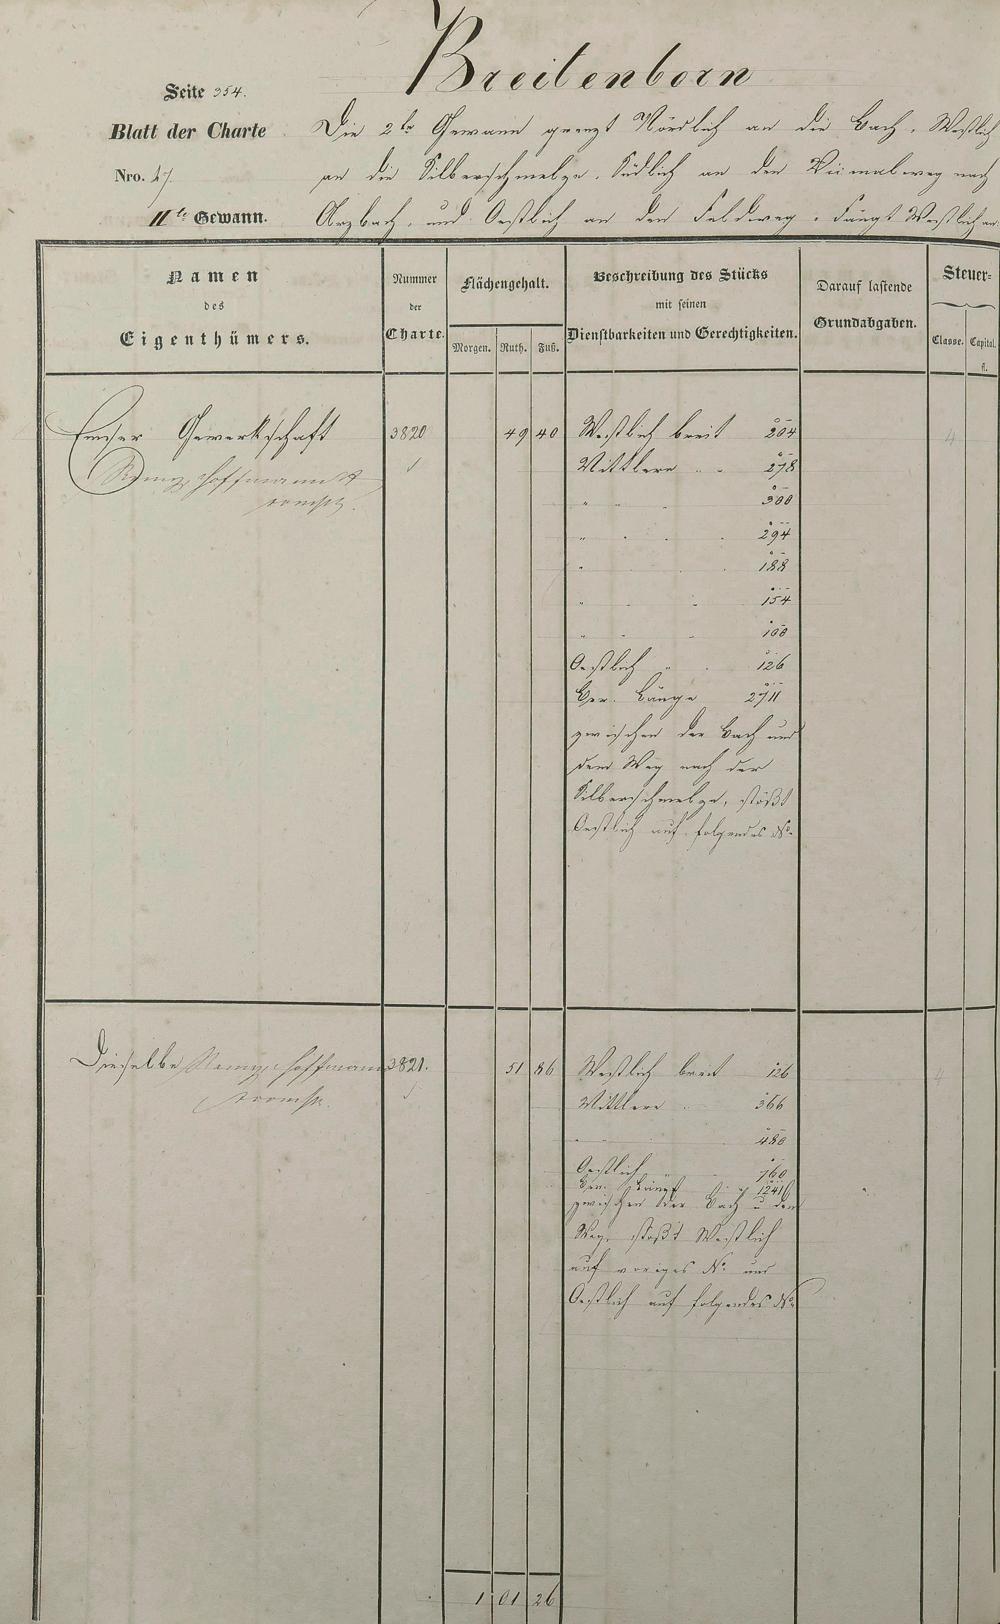 Breitenborn
Seite 354.
Blatt der Charte
Nro. 47.
IIte Gewann.
Die 2te Gewann grenzt Nördlich an die Bach, Westlich
an die Silberschmelze, Südlich an den weg nach
Arzbach, und Oestlich an den Feldweg. Fängt Westlich an.
Namen
des
Eigenthümers.
Nummer
der
Charte.
Flächengehalt.
Morgen. Ruth. Fuß.
Beschreibung des Stücks
mit seinen
Dienstbarkeiten und Gerechtigkeiten.
Darauf lastende
Grundabgaben.
Steuer=
Classe. Capital.
fl.
Emser Gewerkschaft 3820 49 40 Westlich breit 204 4
Remy, Hoffmann & Mittlere " " 278
consort. " " 300
" " 294
" 188
" " 154
" " 100
Oestlich " 126
Ger. Länge 2711
zwischen der Bach und
dem Weg nach der
Silberschmelze, stößt
Oestlich auf folgendes No.
Dieselbe Remy, Hoffmann 3821. 51 86 Westlich breit 126 4
consort. Mittlere " 366
" 480
Oestlich 760
Ger. Länge 12416
zwischen der Bach u den
Weg, stößt Westlich
auf voriges No. und
Oestlich auf folgendes No.
1 01 26